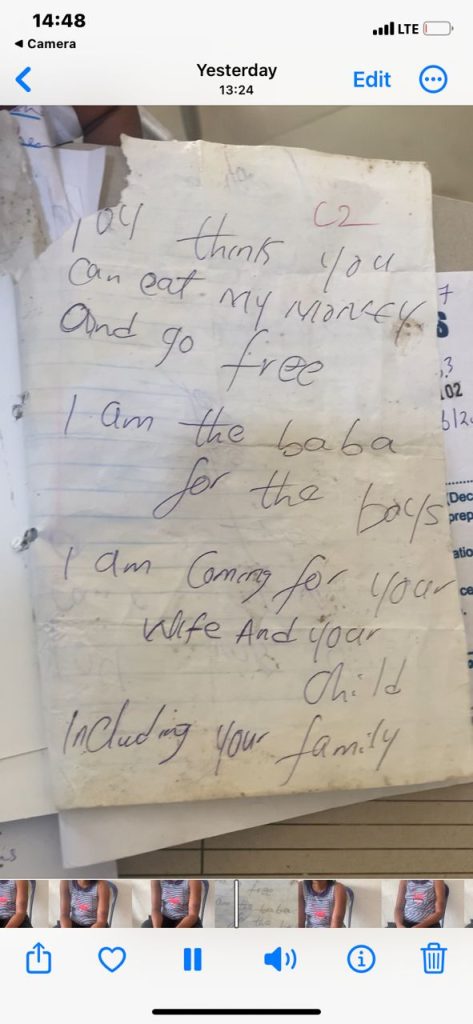 14:48
LTE
Camera
Yesterday
13:24
Edit
C2
you think you
can eat my MONEY
And go free
I am the baba
for the boys
I am Coming for your
Wife And your
Child
Including your family
7
S
.3
102
(Dec
prep
atio
ce